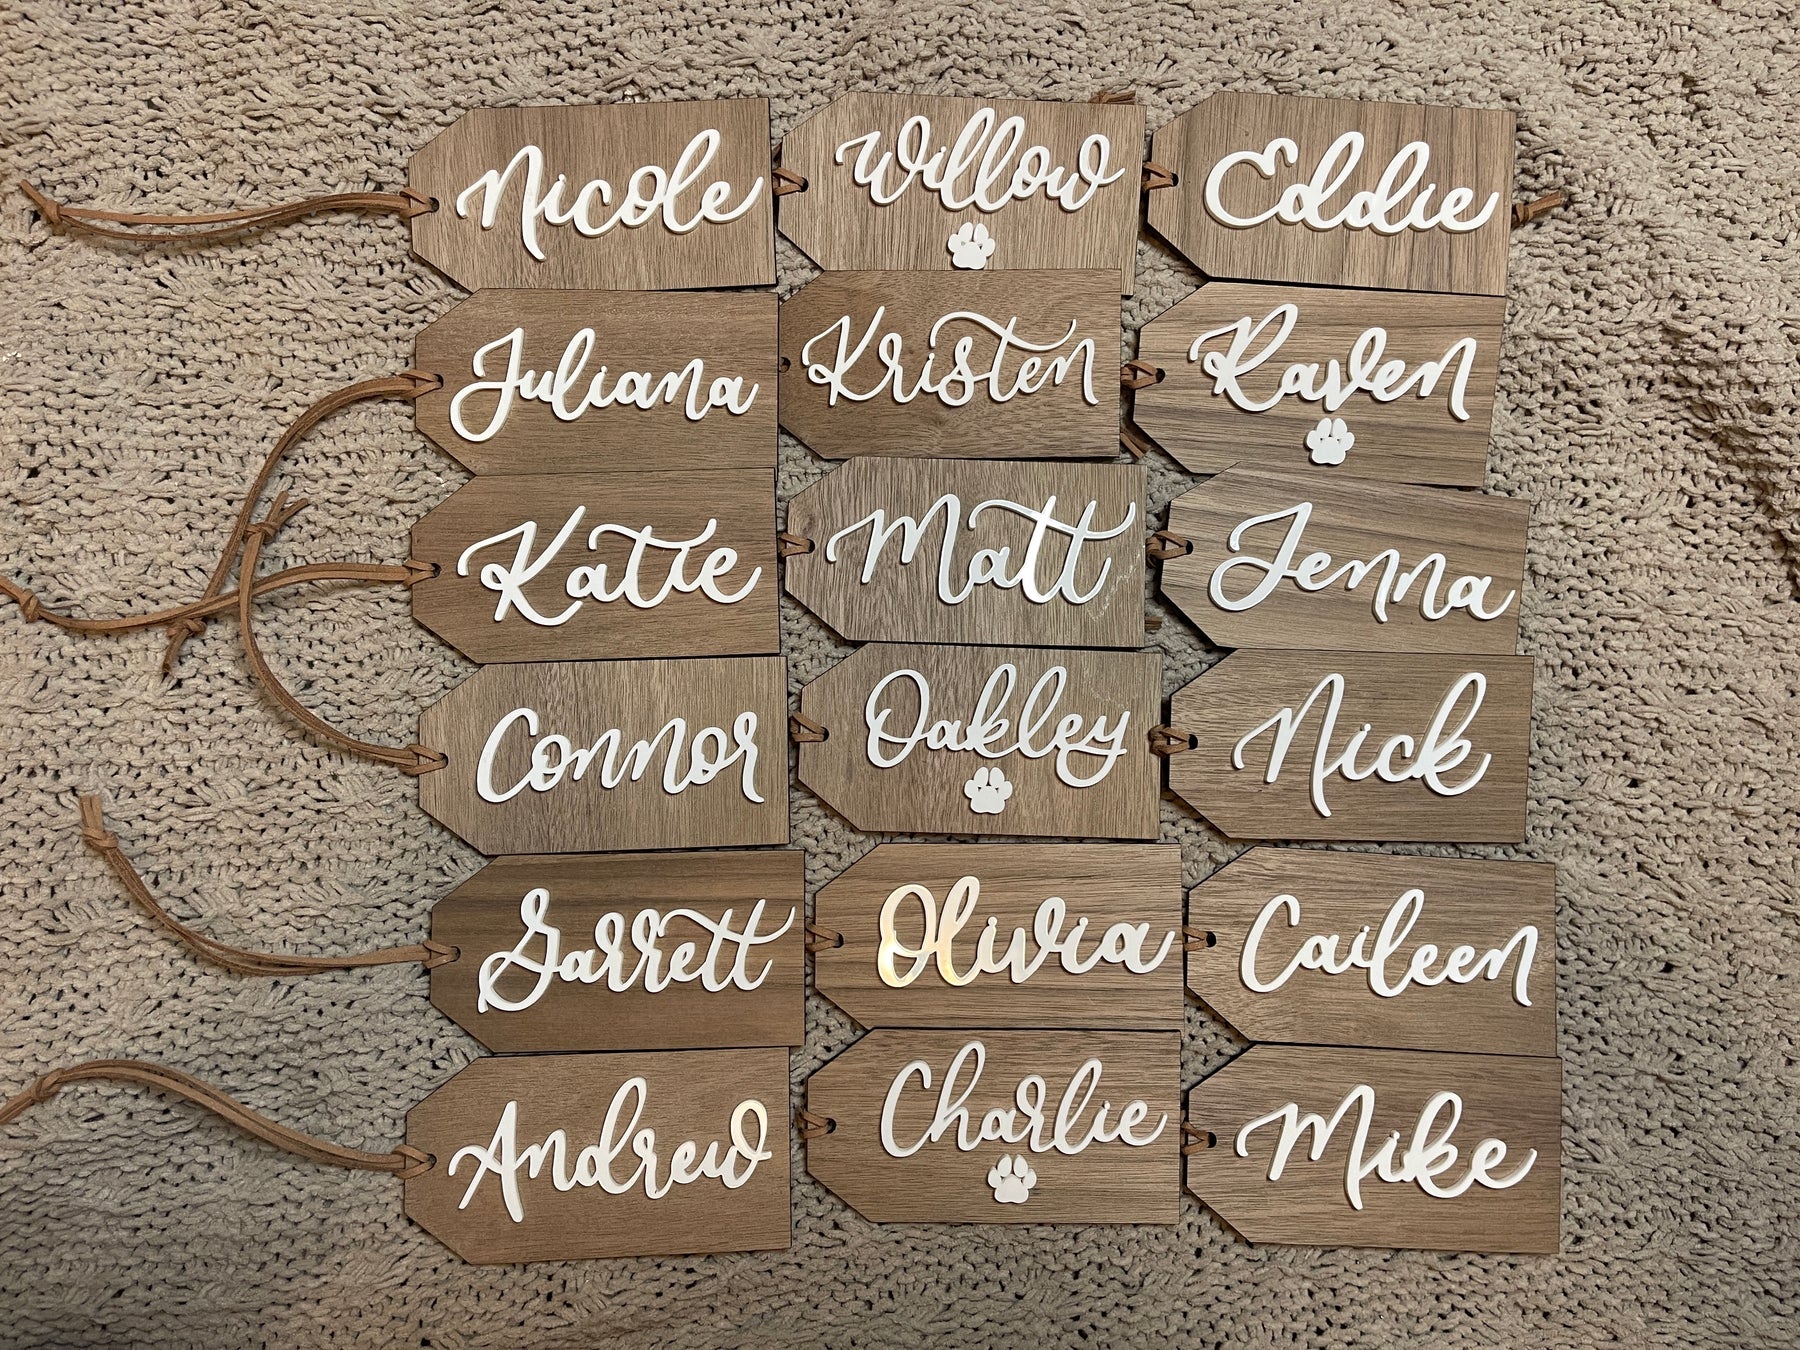 Nicole
Willow
Eddie
Juliana
Kristen
Raven
Katie
Matt
Jenna
Connor
Oakley
Nick
Garrett
Olivia
Caileen
Andrew
Charlie
Mike